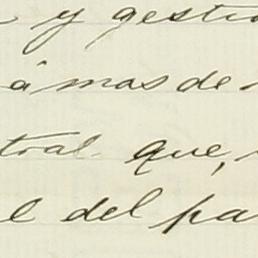 y gestio
á mas de
tral que,
l del pa